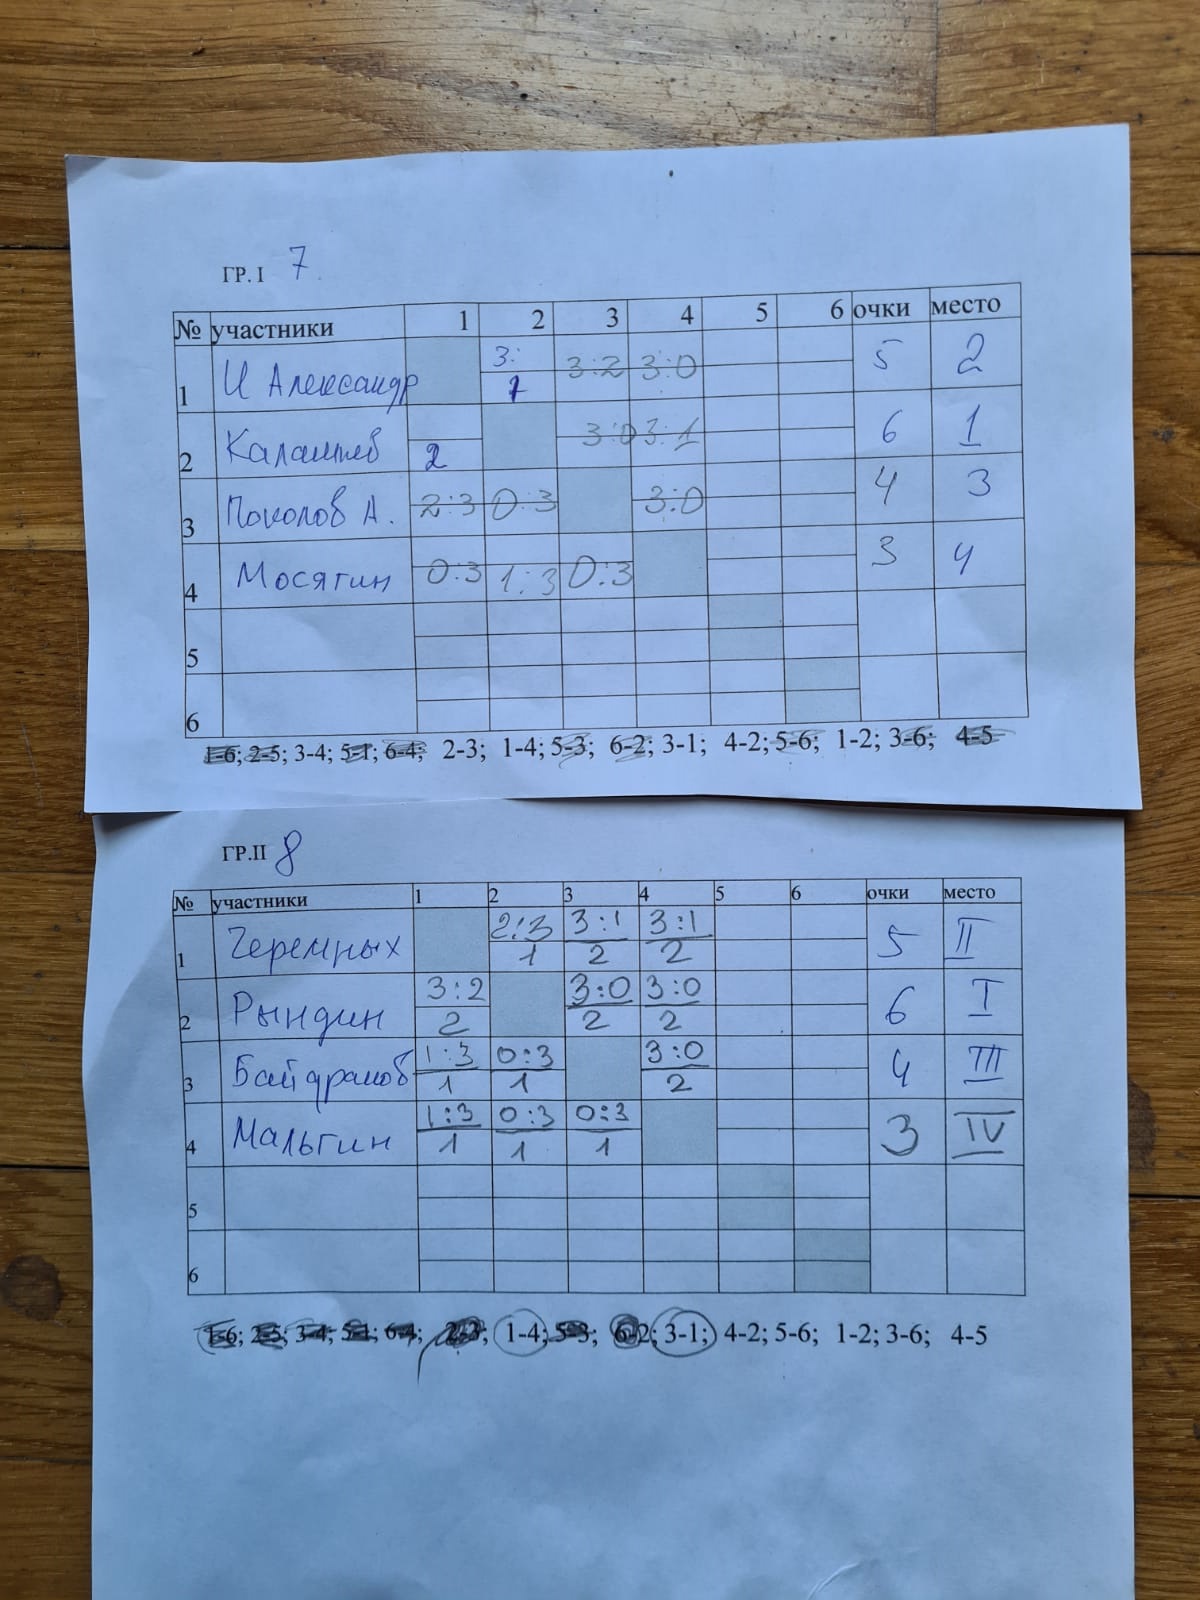 ГР. I 7
№ участники 1 2 3 4 5 6 очки место
1 И Александр 3: 1 3:2 3:0 5 2
2 2 3:0 3:1 6 1
3 Поколов А. 2:3 0:3 3:0 4 3
4 Мосягин 0:3 1:3 0:3 3 4
5
6
1-6; 2-5; 3-4; 5-1; 6-4; 2-3; 1-4; 5-3; 6-2; 3-1; 4-2; 5-6; 1-2; 3-6; 4-5
ГР.II 8
№ участники 1 2 3 4 5 6 очки место
1 Черемных 2:3 3:1 3:1 5 II
1 2 2
2 Рындин 3:2 3:0 3:0 6 I
2 2 2
3 Байрамов 1:3 0:3 3:0 4 III
1 1 2
4 Мальгин 1:3 0:3 0:3 3 IV
1 1 1
5
6
1-6; 2-5; 3-4; 5-1; 6-4; 2-3; 1-4; 5-3; 6-2; 3-1; 4-2; 5-6; 1-2; 3-6; 4-5